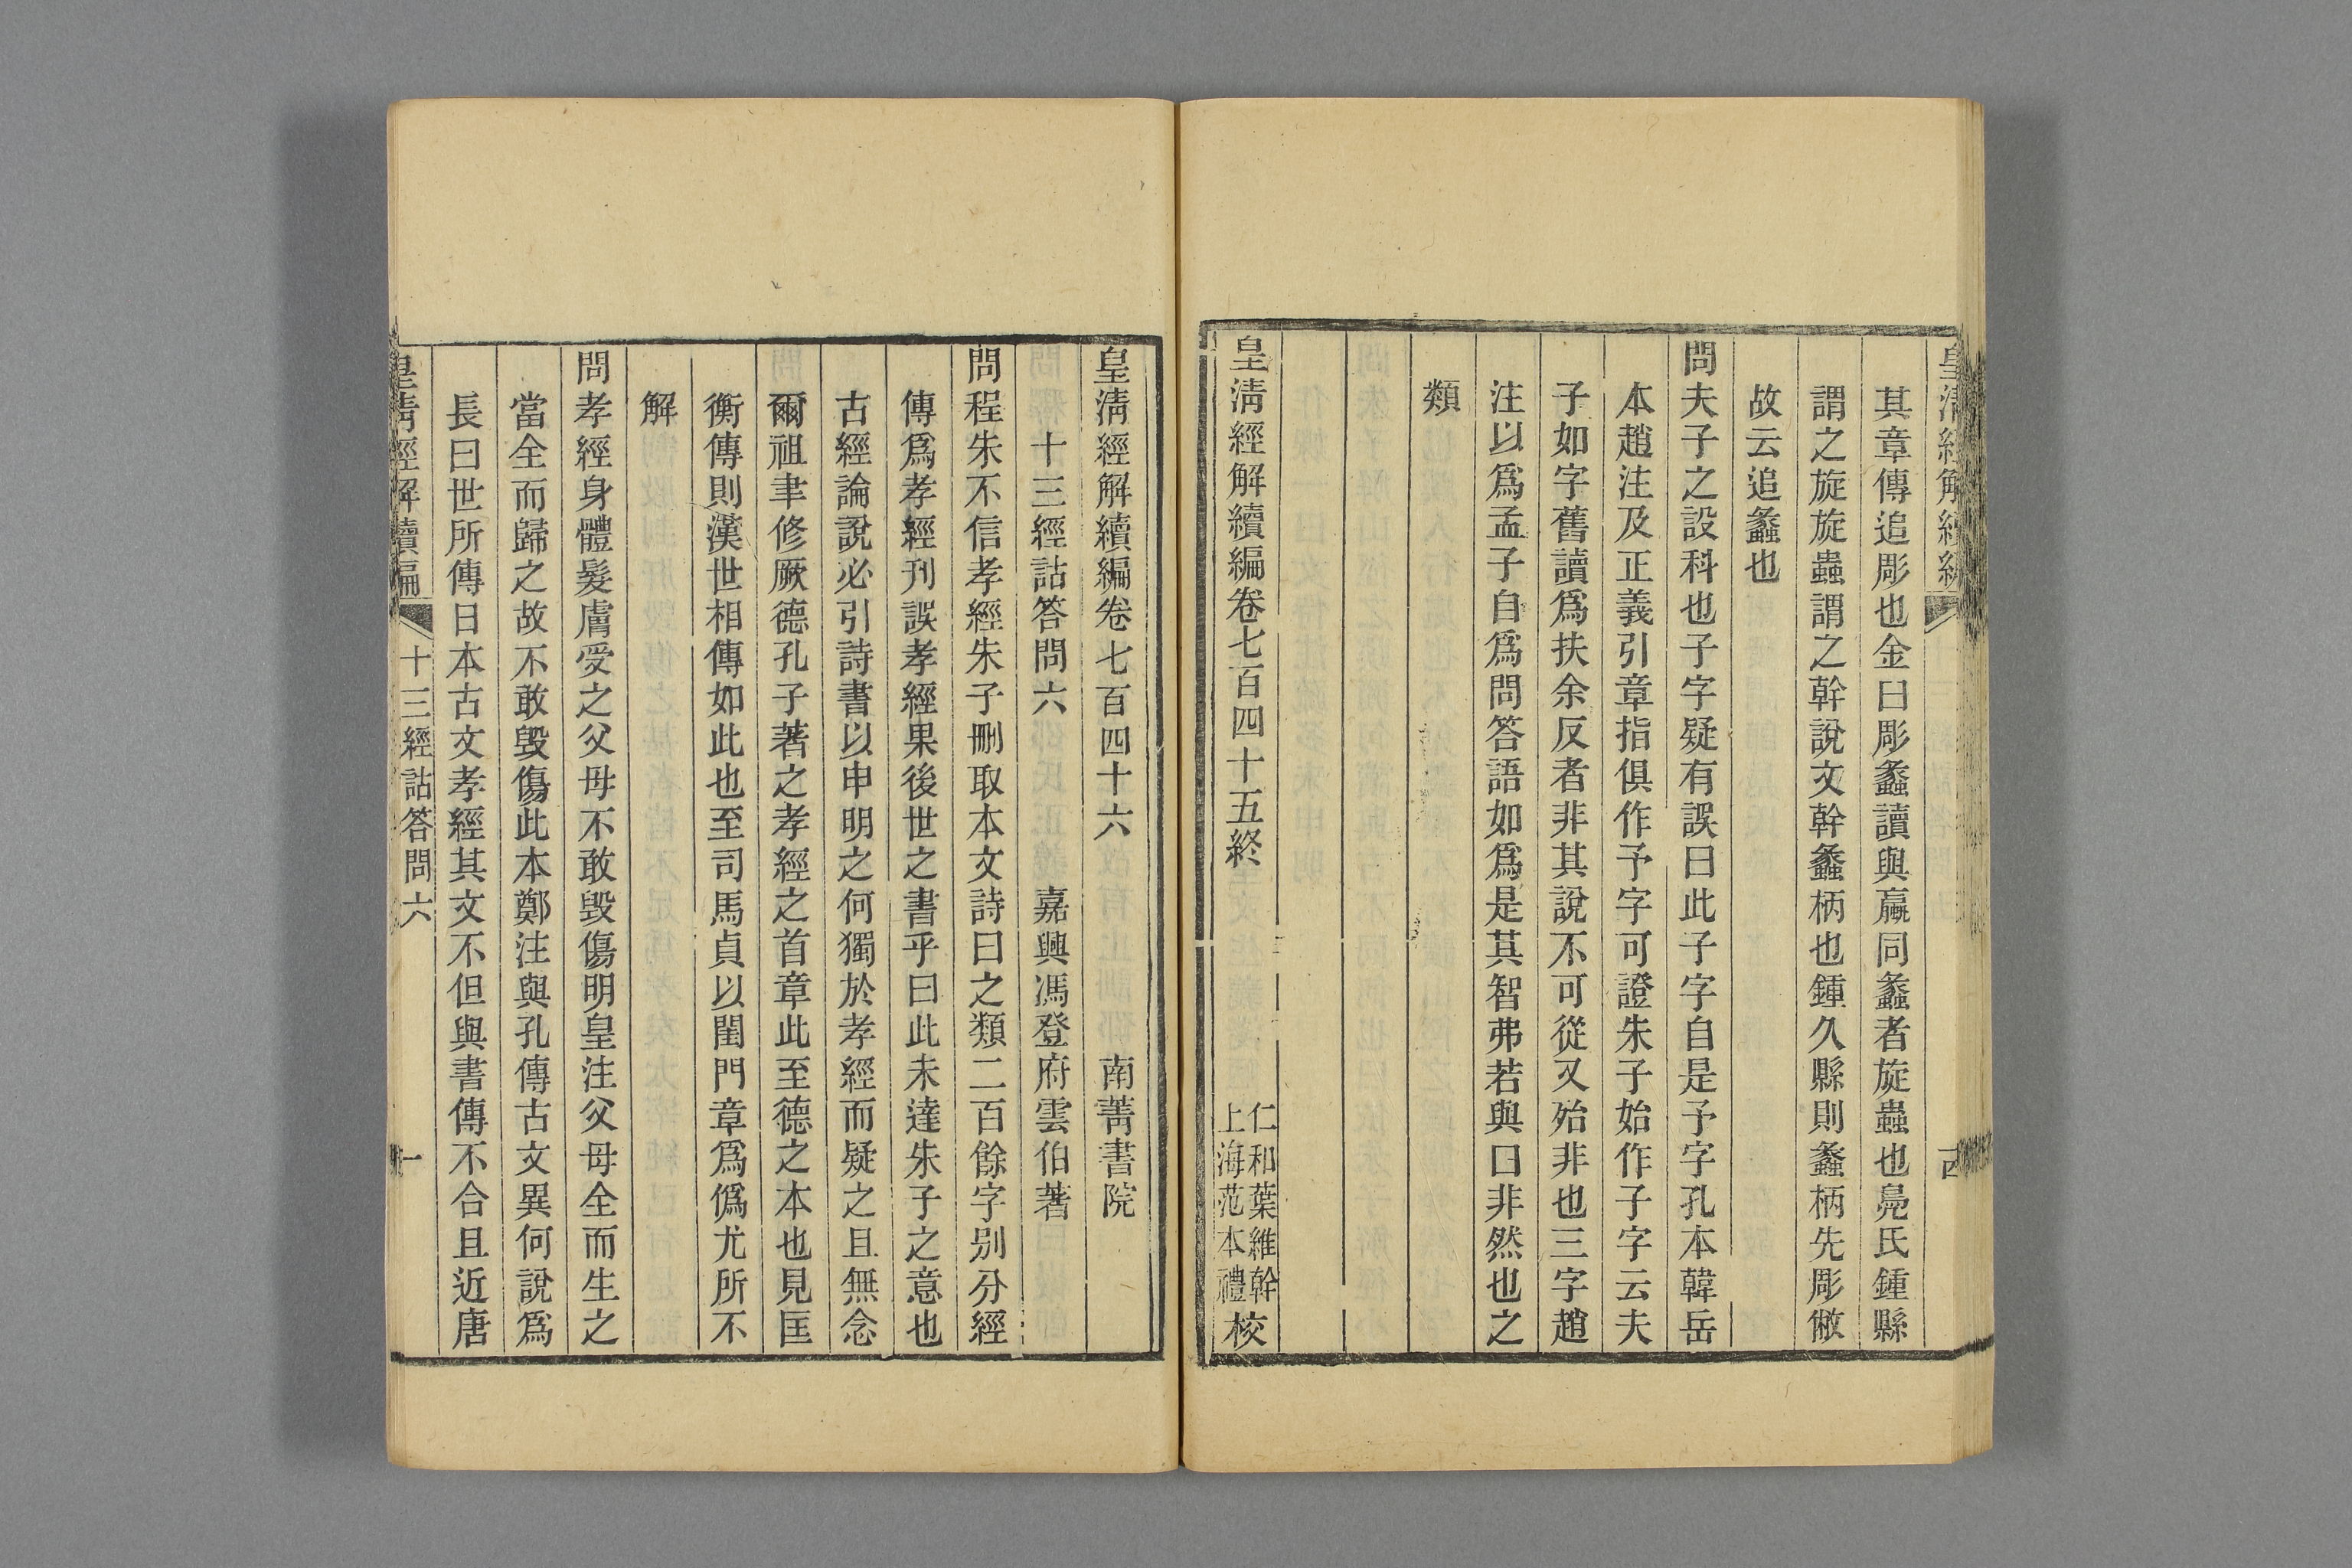 皇清經解續編
其章傳追彫也金曰彫蠡讀與蠃同蠡者旋蟲也鳧氏鍾縣
謂之旋旋蟲謂之幹說文幹蠡柄也鍾久縣則蠡柄先彫敝
故云追蠡也
問夫子之設科也子字疑有誤曰此子字自是予字孔本韓岳
本趙注及正義引章指俱作予字可證朱子始作子字云夫
子如字舊讀爲扶余反者非其說不可從又殆非也三字趙
注以爲孟子自爲問答語如爲是其智弗若與曰非然也之
類
皇清經解續編卷七百四十五終
仁和葉維幹
上海范本禮
校
皇清經解續編卷七百四十六
南菁書院
十三經詁答問六
嘉興馮登府雲伯著
問程朱不信孝經朱子刪取本文詩曰之類二百餘字別分經
傳爲孝經刊誤孝經果後世之書乎曰此未達朱子之意也
古經論說必引詩書以申明之何獨於孝經而疑之且無念
爾祖聿修厥德孔子著之孝經之首章此至德之本也見匡
衡傳則漢世相傳如此也至司馬貞以閨門章爲僞尤所不
解
問孝經身體髮膚受之父母不敢毀傷明皇注父母全而生之
當全而歸之故不敢毀傷此本鄭注與孔傳古文異何說爲
長曰世所傳日本古文孝經其文不但與書傳不合且近唐
皇清經解續編
十三經詁答問六
一